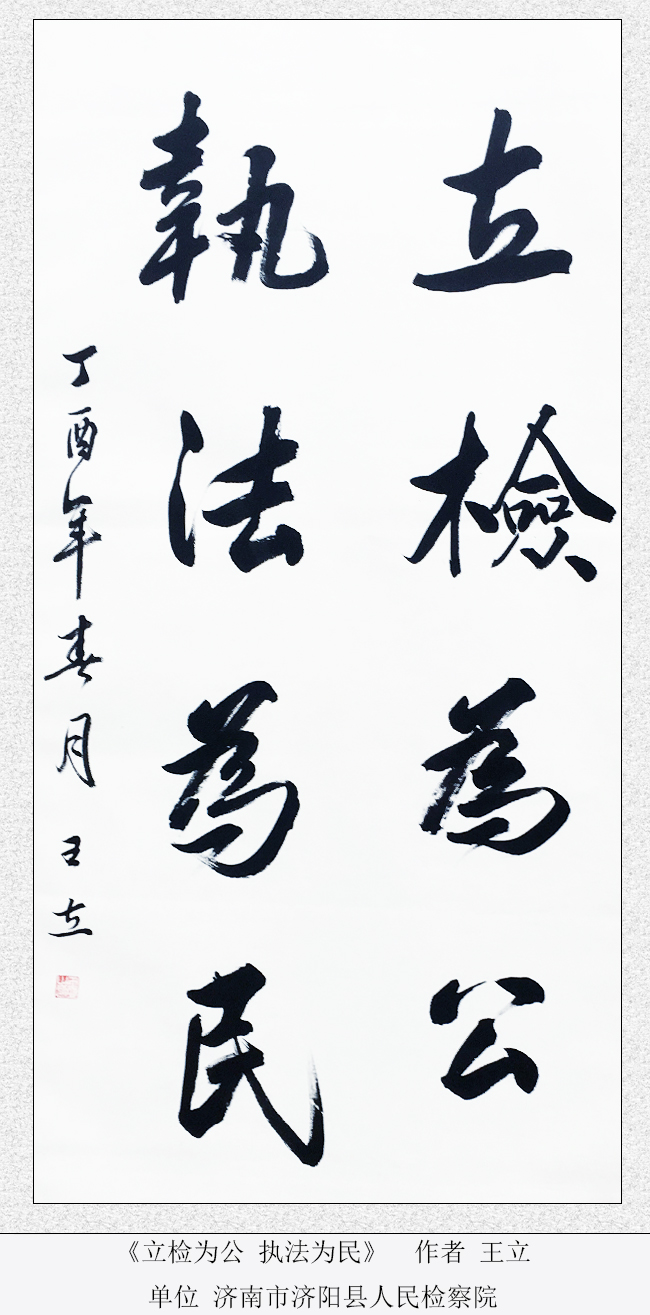 立檢為公
執法為民
丁酉年春月 王立
《立检为公 执法为民》 作者 王立
单位 济南市济阳县人民检察院